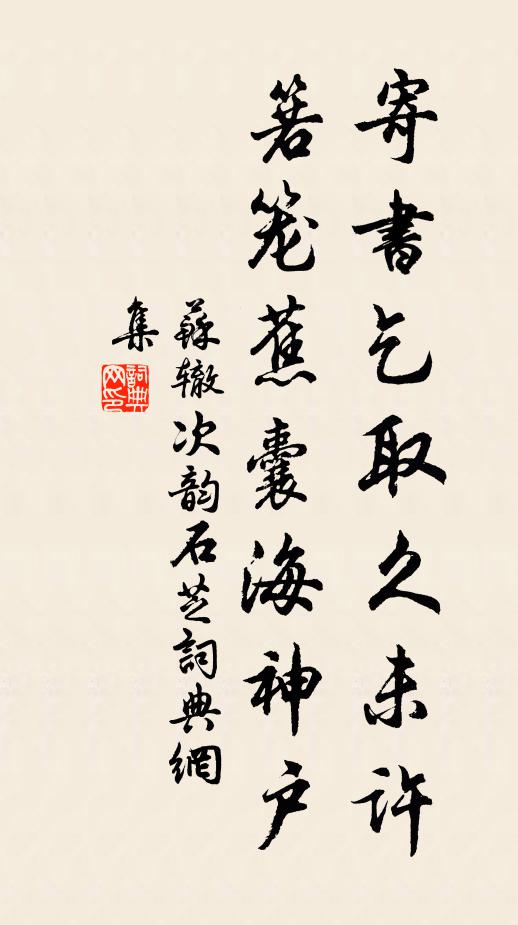 寄書乞取久未許
箬笼蕉囊海神户
蘇辙次韵石芝詞典網
集
詞典
网印